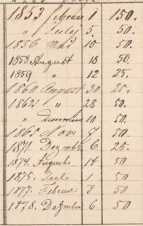 1853 Februar 1 150.
" Juli 5. 50.
1856 März 10 50.
1858 August 18 50.
1859 " 12 25.
1860 August 30 25.
1862 " 28 50.
" 10 50.
1865 Nov 7 70.
1871. Dezember 6 25.
1874. Augusti 14 50
1875. 1 50
1877. Febru 8 50
1878. Dezember 6 50